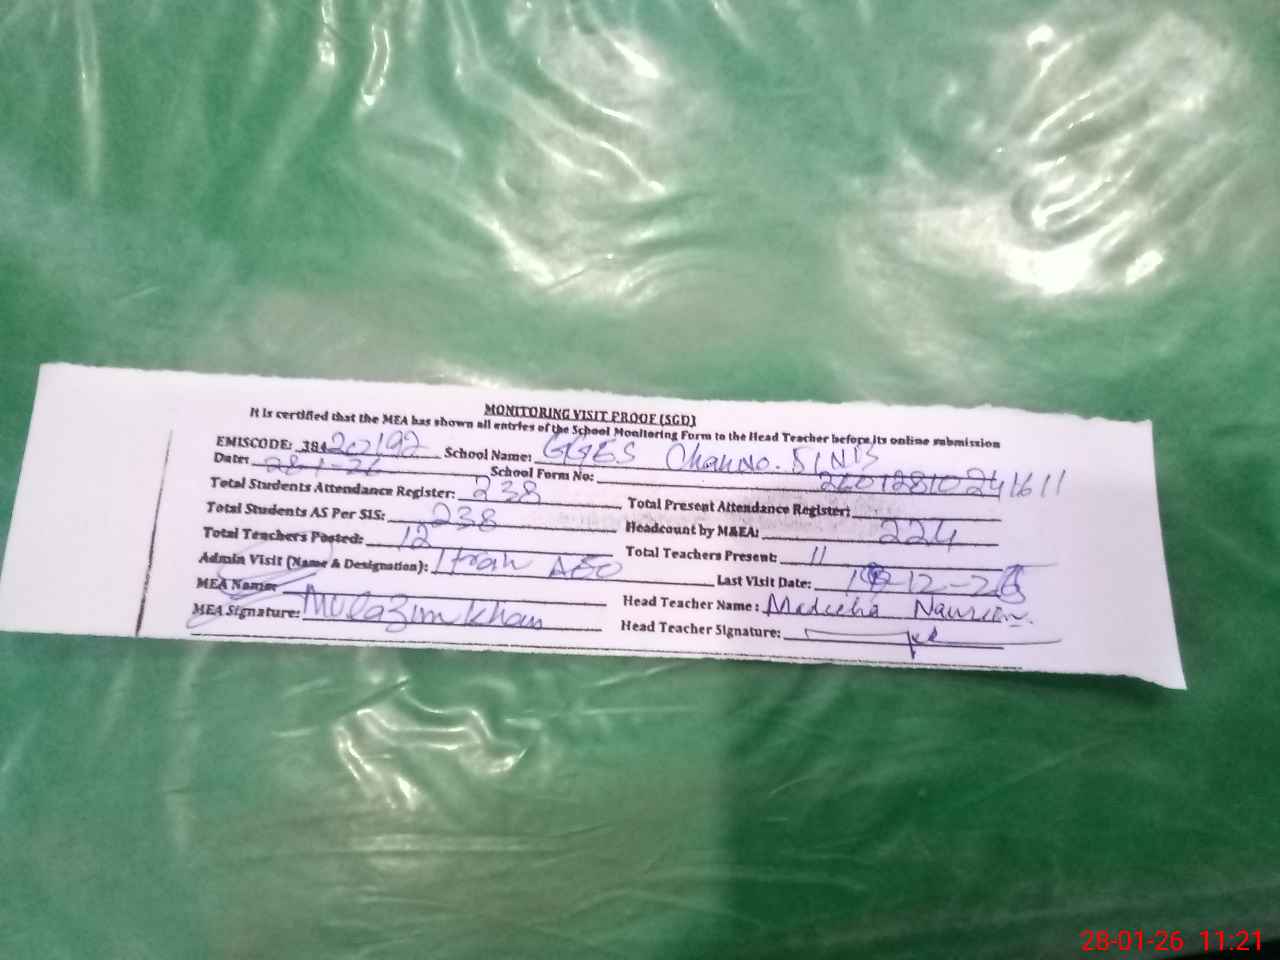 MONITORING VISIT PROOF (SGD)
It is certified that the MEA has shown all entries of the School Monitoring Form to the Head Teacher before its online submission
EMISCODE: 38420192 School Name: GGES Chak No. 51 NB
Date: 28-1-26 School Form No: 26012810241611
Total Students Attendance Register: 238 Total Present Attendance Register:
Total Students AS Per SIS: 238 Headcount by M&EA: 224
Total Teachers Posted: 12 Total Teachers Present: 11
Admin Visit (Name & Designation): AEO Last Visit Date: -12-25
MEA Name: Head Teacher Name: Madeeha Naureen.
MEA Signature: Mulazim khan Head Teacher Signature:
28-01-26 11:21